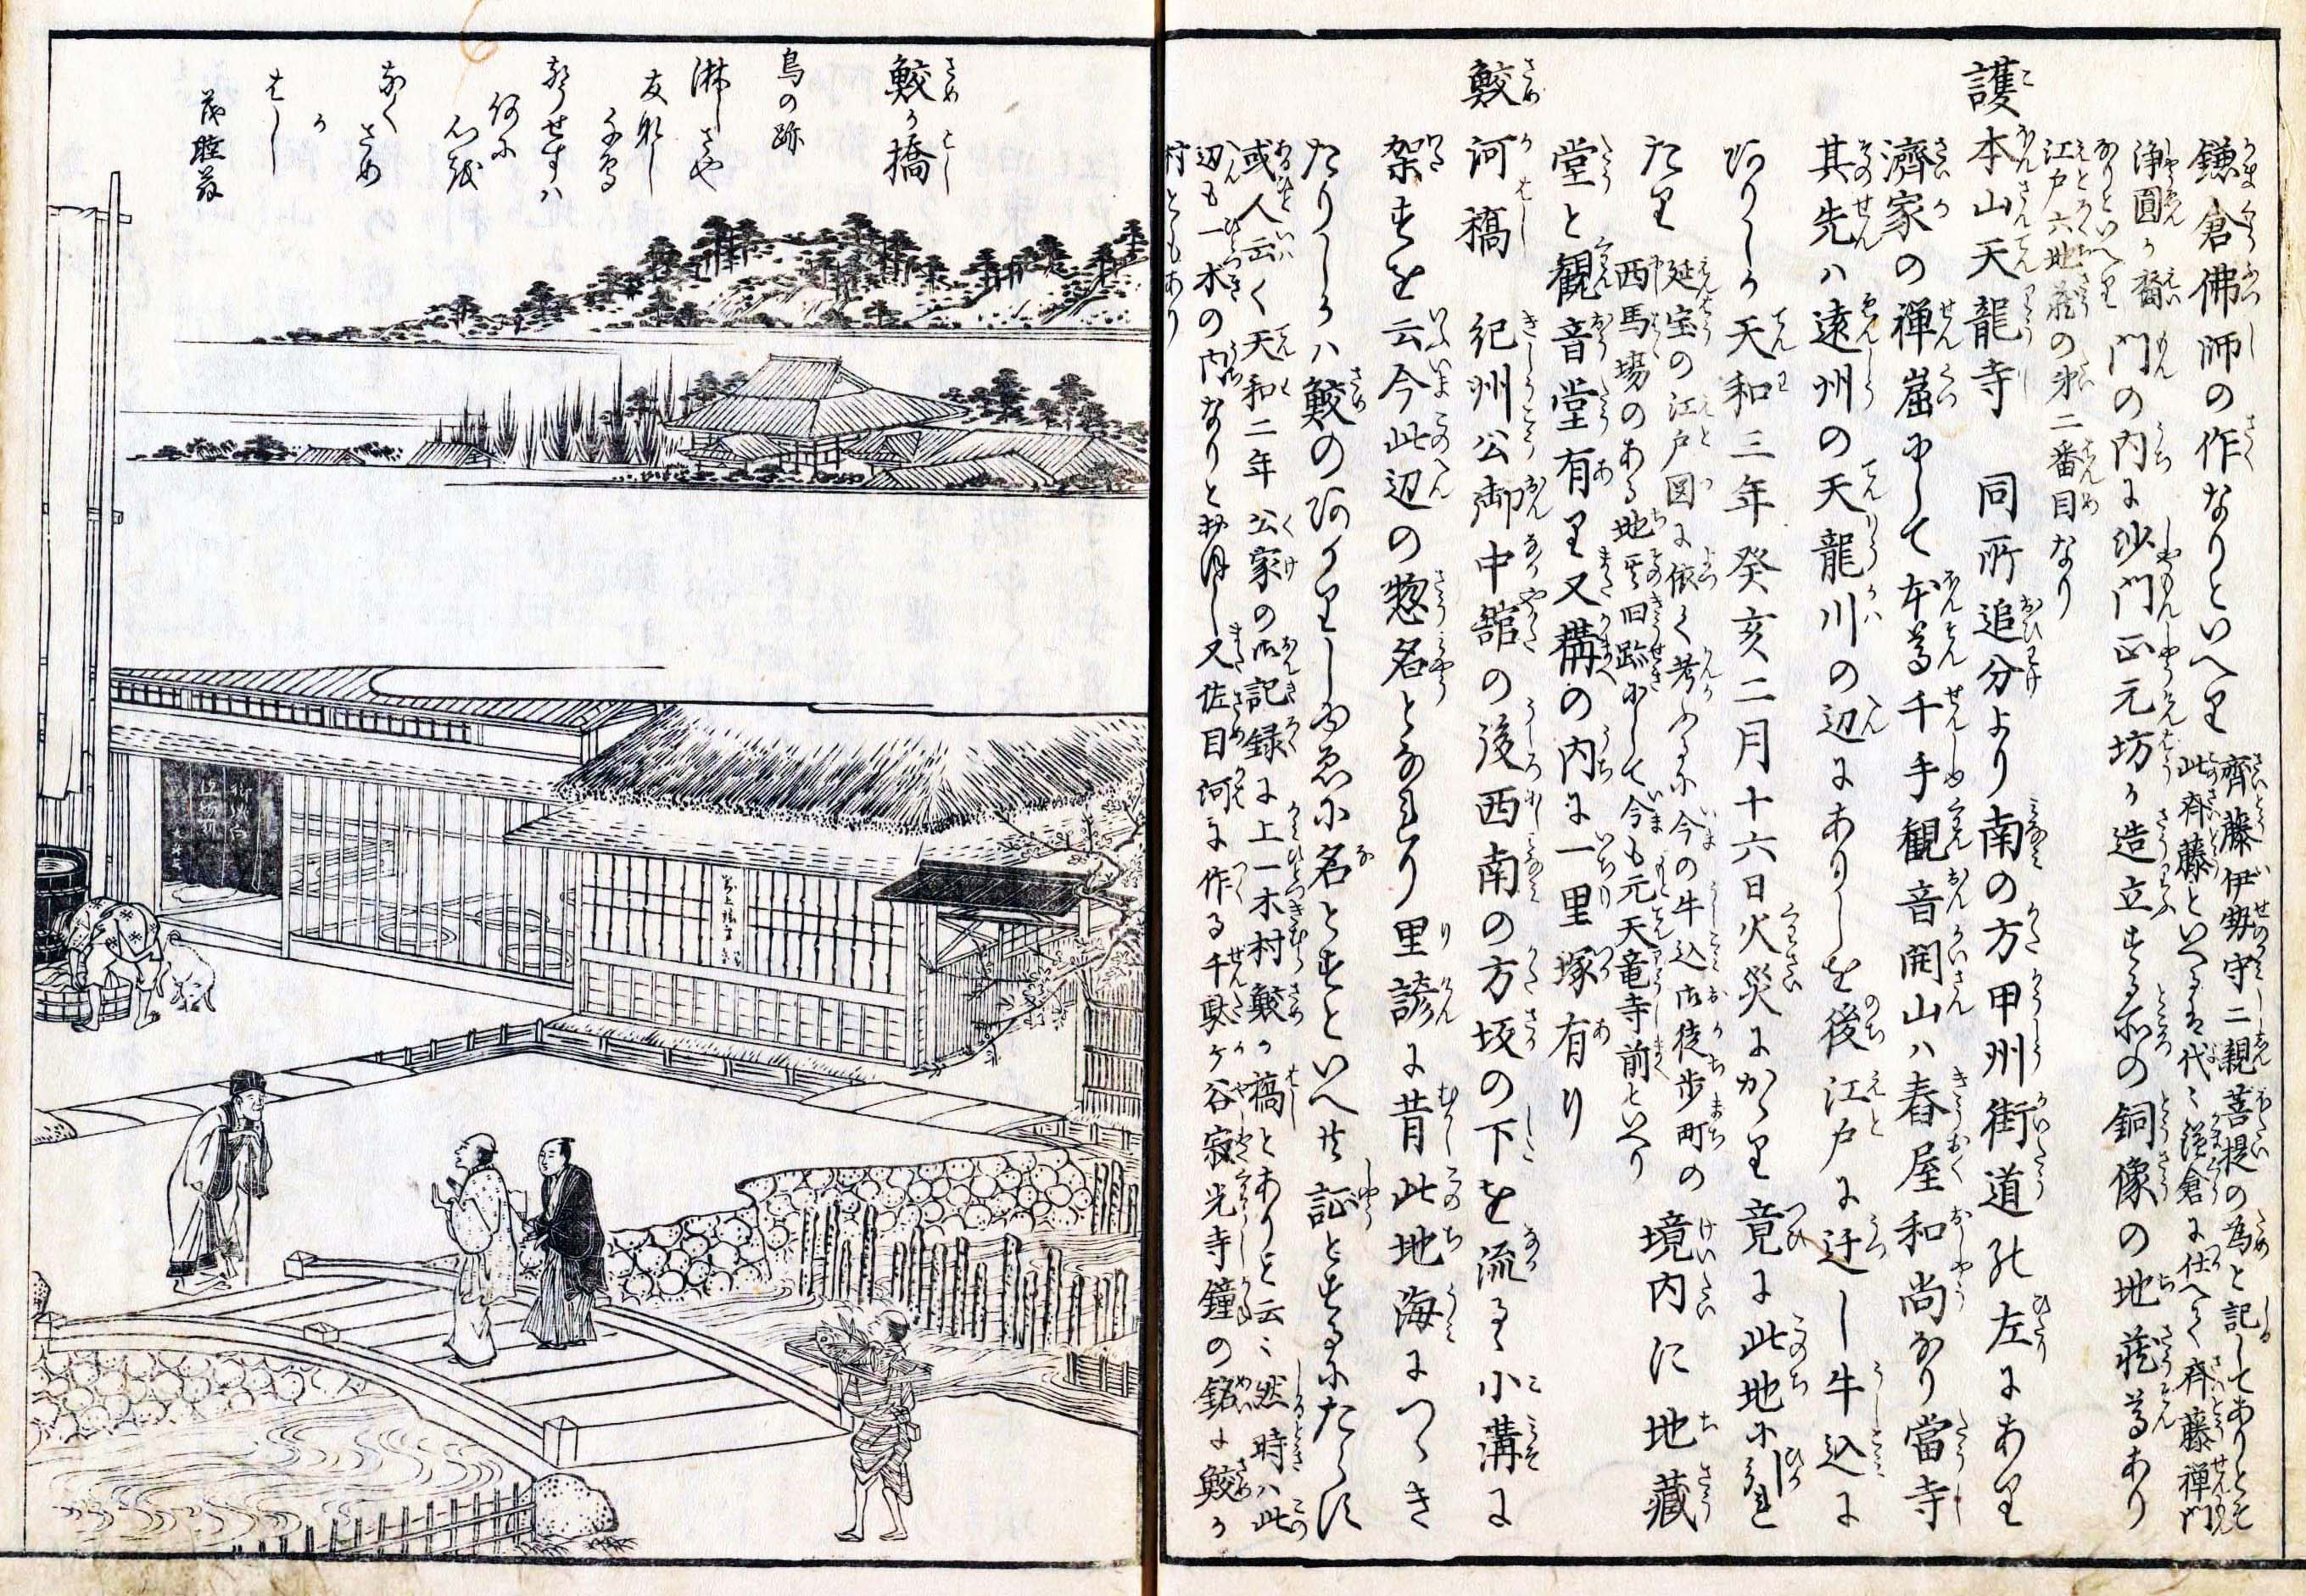 鎌倉佛師の作なりといへり
齊藤伊勢守二親菩提の為と記してありとそ
此斉藤といへるは代々鎌倉に仕へて斉藤禅門
浄圓か裔
なりといへり
門の内に沙門正元坊か造立する所の銅像の地蔵尊あり
江戸六地蔵の第二番目なり
護本山天龍寺 同所追分より南の方甲州街道の左にあり
濟家の禅崛にして本尊千手観音開山ハ春屋和尚なり當寺
其先ハ遠州の天龍川の辺にありしを後江戸に迁し牛込に
ありしか天和三年癸亥二月十六日火災にかゝり竟に此地に
たり
延宝の江戸図に依て考ふるに今の牛込御徒歩町の
西馬場のある地其旧跡にして今も元天竜寺前といへり
境内に地藏
堂と観音堂有り又構の内に一里塚有り
鮫河橋 紀州公御中館の後西南の方坂の下を流るゝ小溝に
架すを云今此辺の惣名となれり里諺に昔此地海につゝき
たりしかハ鮫のあかりしゆゑに名とすといへ共証とするにたらす
或人云く天和二年公家の御記録に上一木村鮫か橋とありと云々然時ハ此
辺も一木の内なりと
又佐目河に作る千駄ヶ谷寂光寺鐘の銘に鮫か
村ともあり
鮫か橋
鳥の跡
淋しさや
友なし
千鳥
声せすハ
何に
心を
なく
さめ
か
はし
茂睡